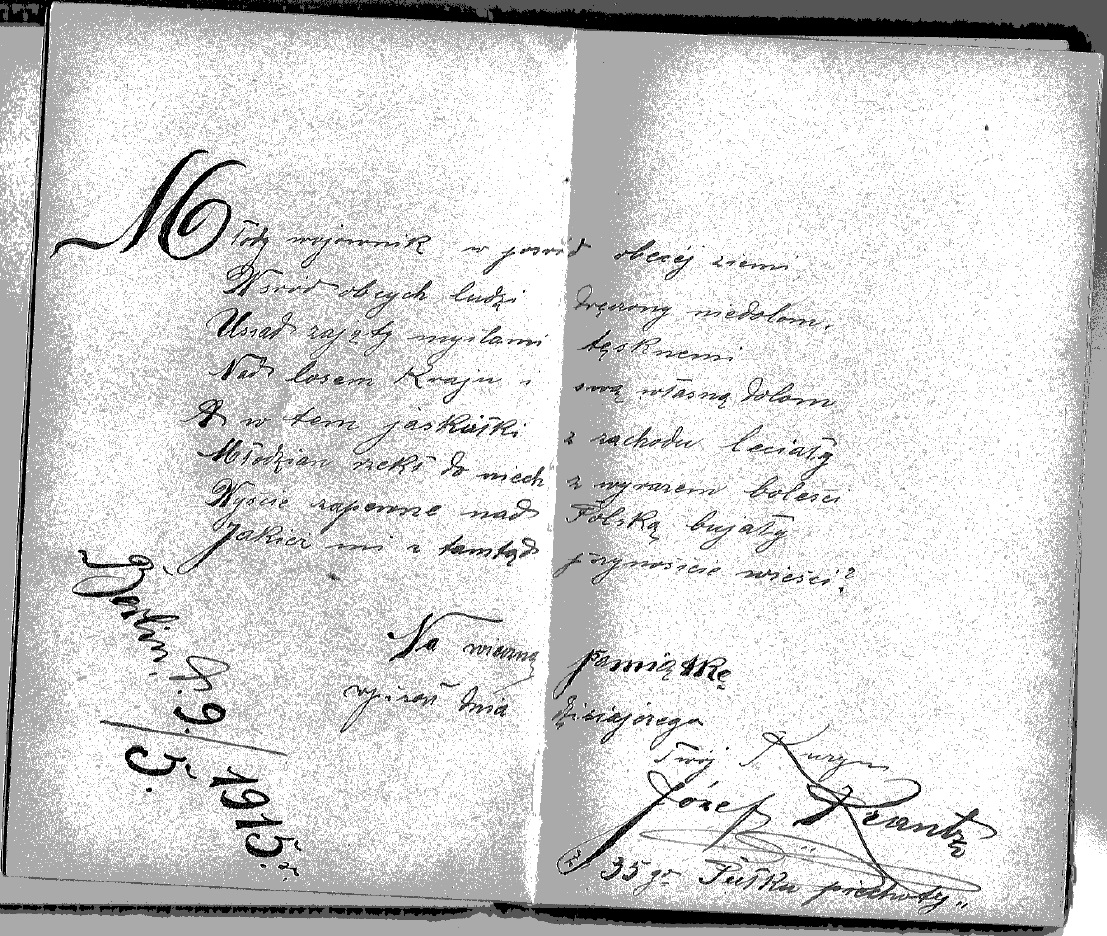 Młody wojownik w pośród obcéj ziemi
Wsrod obcych ludzi dręczony niedolom,
Usiad zajęty myslami tęsknemi
Nad losem Kraju i swą własną dolom
A w tem jaskułki z zachodu leciały
Młodzian rzekł do niech z wyrazem boleści
Wyscie zapewne nad Polską bujały
Jakież mi z tamtąd przynosicie wieści?
Na wieczną pamiątkę
wpisał dnia dzisiajszego
Twój Kuzyn
Józef Krantz
35go Pułku piechoty"
Berlin. d. 9/5. 1915 r.